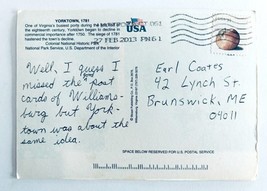 YORKTOWN, 1781
One of Virginia's busiest ports during the early part of
the eighteenth century, Yorktown began to decline in
commercial importance after 1750. The siege of 1781
hastened the town's decline.
Colonial National Historic Park
National Park Service, U.S. Department of the Interior
USA
27 FEB 2013 PM 6 L
Well, I guess I
missed the good post
cards of Williams-
burg but York-
town was about the
same idea.
Earl Coates
42 Lynch St
Brunswick, ME
04011
SPACE BELOW RESERVED FOR U.S. POSTAL SERVICE